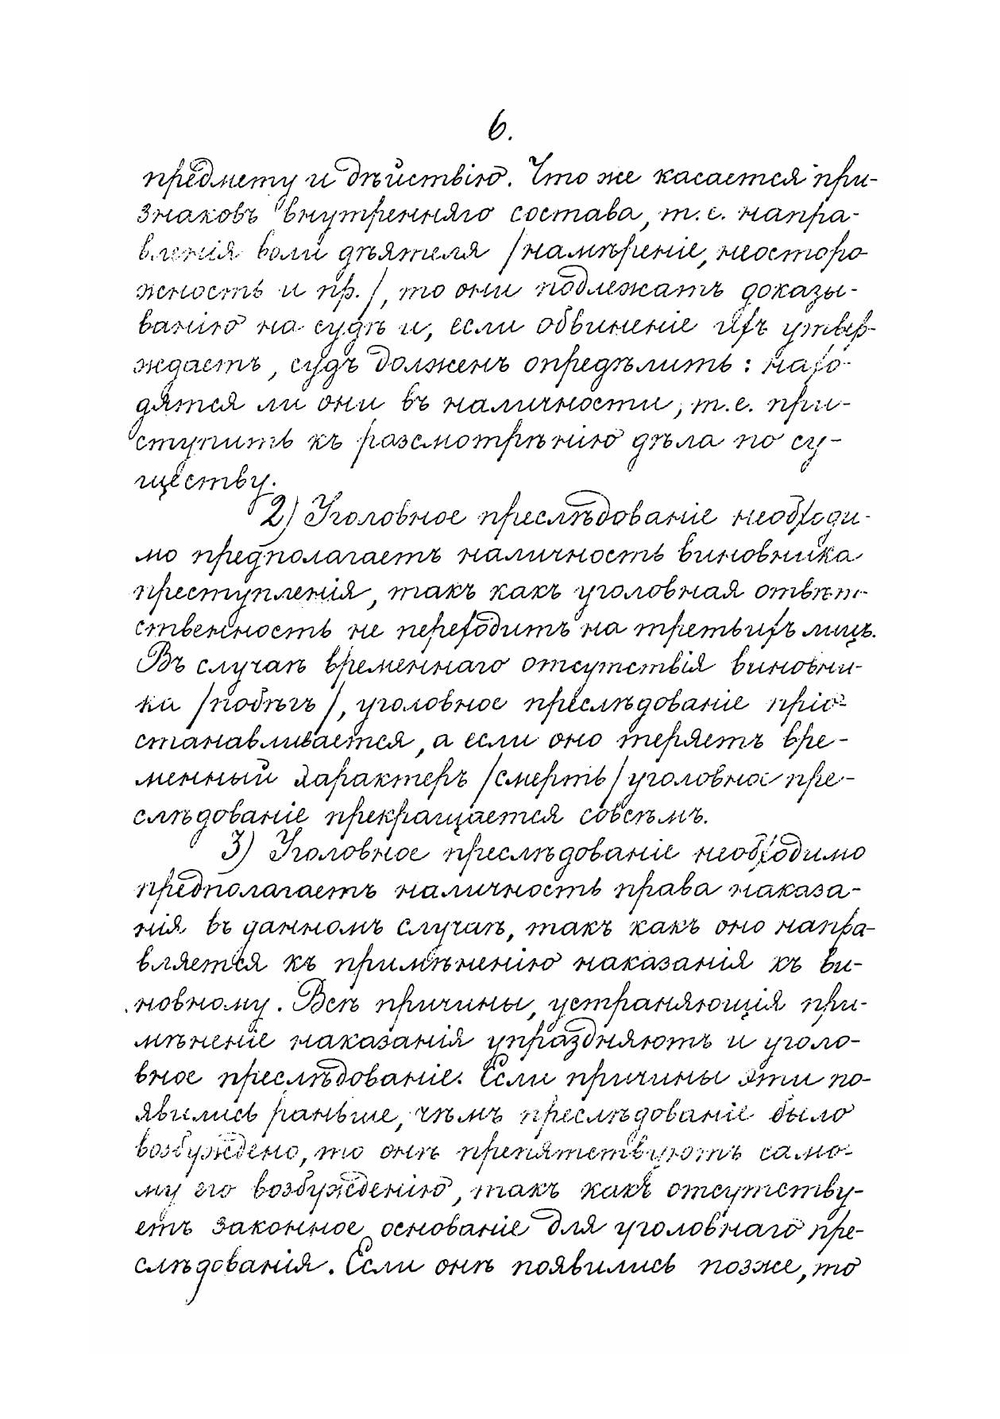 6.
предмету и дѣйствію. Что же касается при-
знаковъ внутренняго состава, т.е. напра-
вленія воли дѣятеля /намѣреніе, неосторо
жность и пр./, то они подлежатъ доказы-
ванію на судѣ и, если обвиненіе ихъ утвер-
ждаетъ, судъ долженъ опредѣлить: нахо-
дятся ли они въ наличности, т.е. при-
ступить къ разсмотрѣнію дѣла по су-
ществу.
2) Уголовное преслѣдованіе необходи-
мо предполагаетъ наличность виновника
преступленія, такъ какъ уголовная отвѣт-
ственность не переходитъ на третьихъ лицъ.
Въ случаѣ временнаго отсутствія виновни-
ка /побѣгъ/, уголовное преслѣдованіе прiо-
станавливается, а если оно теряетъ вре-
менный характеръ /смерть/ уголовное пре-
слѣдованіе прекращается совсѣмъ.
3) Уголовное преслѣдованіе необходимо
предполагаетъ наличность права наказа-
нія въ данномъ случаѣ, такъ какъ оно напра-
вляется къ примѣненію наказанія къ ви-
новному. Всѣ причины, устраняющія при-
мѣненіе наказанія упраздняютъ и уголо-
вное преслѣдованіе. Если причины эти по-
явились раньше, чѣмъ преслѣдованіе было
возбуждено, то онѣ препятствуютъ само-
му его возбужденію, такъ какъ отсутству-
етъ законное основаніе для уголовнаго пре-
слѣдованія. Если онѣ появились позже, то